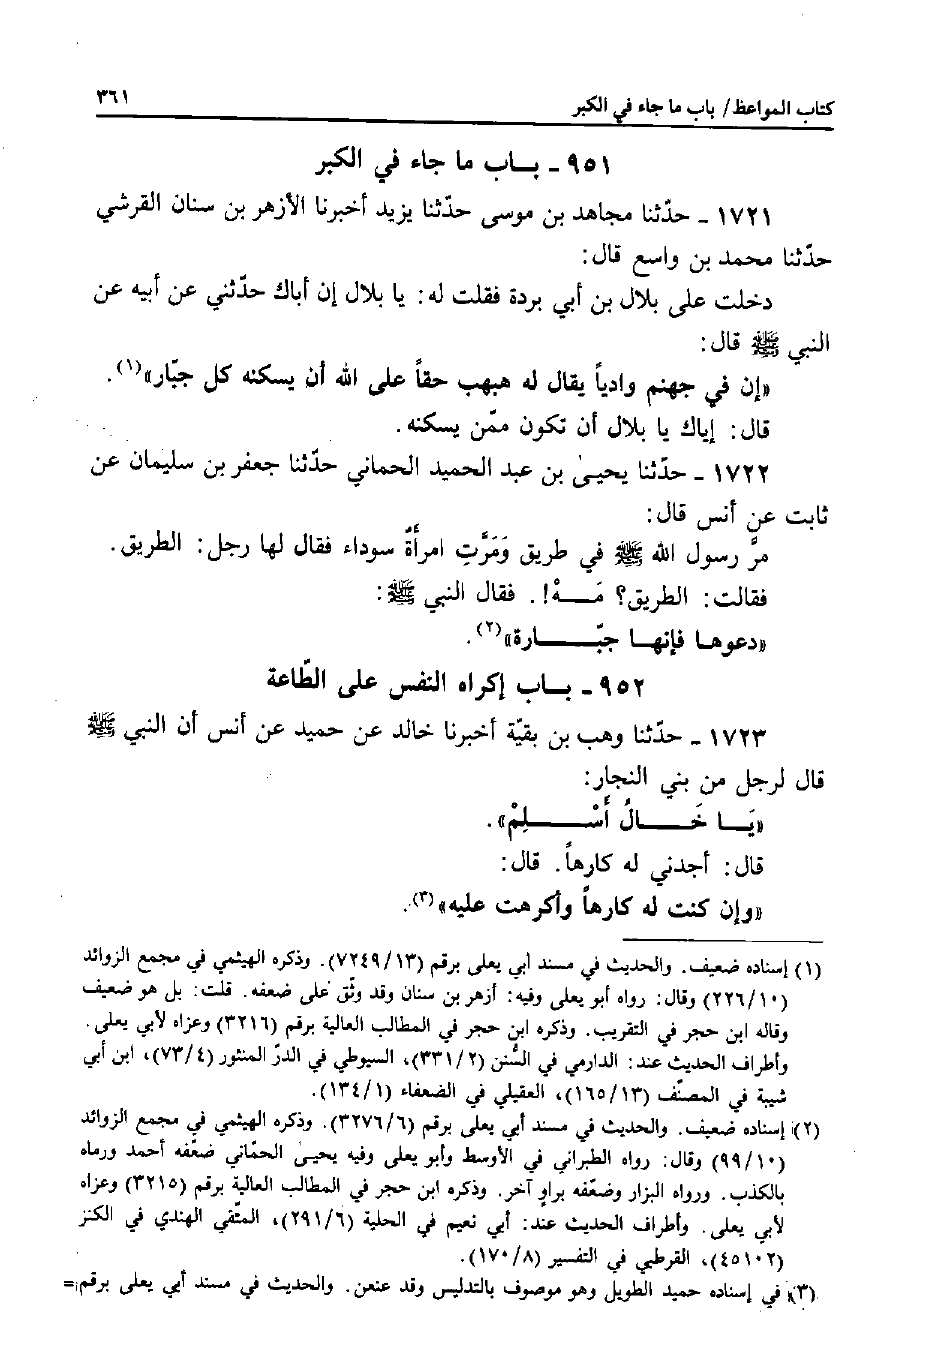 كتاب المواعظ/ باب ما جاء في الكبر ٣٦١
٩٥١ - بـاب ما جاء في الكبر
١٧٢١ - حدّثنا مجاهد بن موسى حدّثنا يزيد أخبرنا الأزهر بن سنان القرشي
حدّثنا محمد بن واسع قال:
دخلت على بلال بن أبي بردة فقلت له: يا بلال إن أباك حدّثني عن أبيه عن
النبي ﷺ قال:
«إن في جهنم وادياً يقال له هبهب حقاً على الله أن يسكنه كل جبّار»(١).
قال: إياك يا بلال أن تكون ممّن يسكنه.
١٧٢٢ - حدّثنا يحيىٰ بن عبد الحميد الحماني حدّثنا جعفر بن سليمان عن
ثابت عن أنس قال:
مرَّ رسول الله ﷺ في طريق وَمَرَّتِ امرأَةٌ سوداء فقال لها رجل: الطريق.
فقالت: الطريق؟ مَـــهْ!. فقال النبي ﷺ:
«دعوها فإنها جبّـــارة»(٢).
٩٥٢ - بـاب إكراه النفس على الطّاعة
١٧٢٣ - حدّثنا وهب بن بقيّة أخبرنا خالد عن حميد عن أنس أن النبي ﷺ
قال لرجل من بني النجار:
«يَـــا خَـــالُ أَسْـــلِمْ».
قال: أجدني له كارهاً. قال:
«وإن كنت له كارهاً وأكرهت عليه»(٣).
(١) إسناده ضعيف. والحديث في مسند أبي يعلى برقم (٧٢٤٩/١٣). وذكره الهيثمي في مجمع الزوائد
(٢٢٦/١٠) وقال: رواه أبو يعلى وفيه: أزهر بن سنان وقد وثّق على ضعفه. قلت: بل هو ضعيف
وقاله ابن حجر في التقريب. وذكره ابن حجر في المطالب العالية برقم (٣٢١٦) وعزاه لأبي يعلى.
وأطراف الحديث عند: الدارمي في السُّنن (٣٣١/٢)، السيوطي في الدرّ المنثور (٧٣/٤)، ابن أبي
شيبة في المصنّف (١٦٥/١٣)، العقيلي في الضعفاء (١٣٤/١).
(٢) إسناده ضعيف. والحديث في مسند أبي يعلى برقم (٣٢٧٦/٦). وذكره الهيثمي في مجمع الزوائد
(٩٩/١٠) وقال: رواه الطبراني في الأوسط وأبو يعلى وفيه يحيىٰ الحمّاني ضعّفه أحمد ورماه
بالكذب. ورواه البزار وضعّفه براوٍ آخر. وذكره ابن حجر في المطالب العالية برقم (٣٢١٥) وعزاه
لأبي يعلى. وأطراف الحديث عند: أبي نعيم في الحلية (٢٩١/٦)، المتّقي الهندي في الكنز
(٤٥١٠٢)، القرطبي في التفسير (١٧٠/٨).
(٣) في إسناده حميد الطويل وهو موصوف بالتدليس وقد عنعن. والحديث في مسند أبي يعلى برقم=